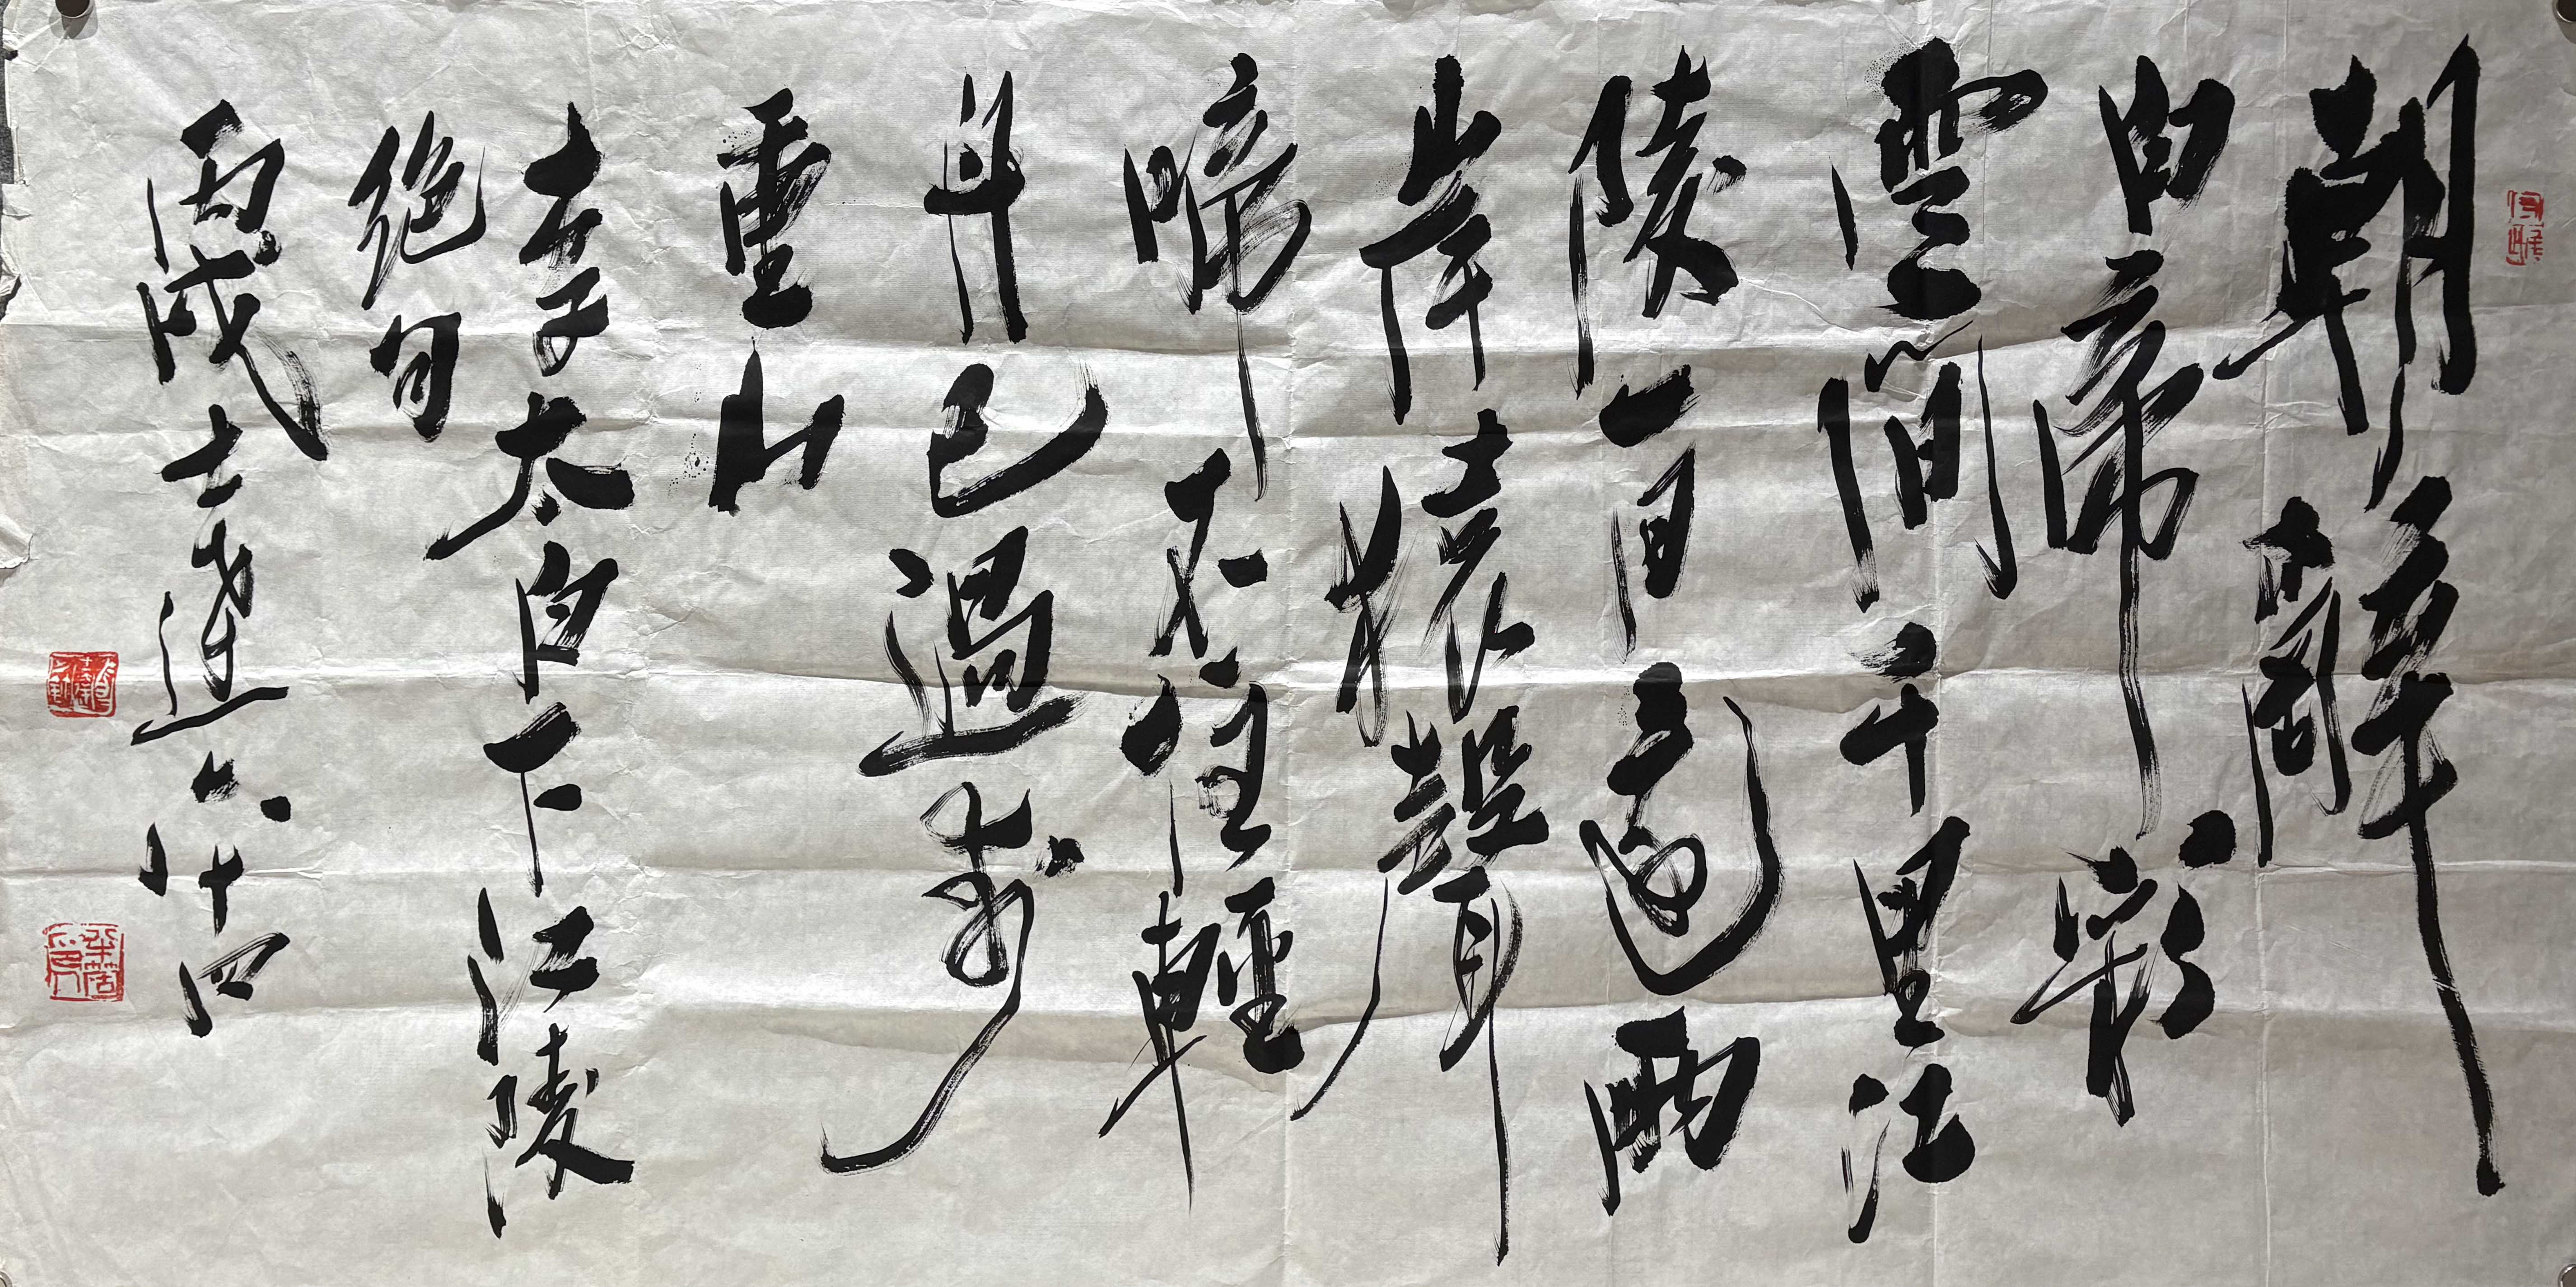 朝辭
白帝彩
雲間千里江
陵一日還兩
岸猿聲
啼不住輕
舟已過萬
重山
李太白下江陵
絕句
丙戌士達六十四